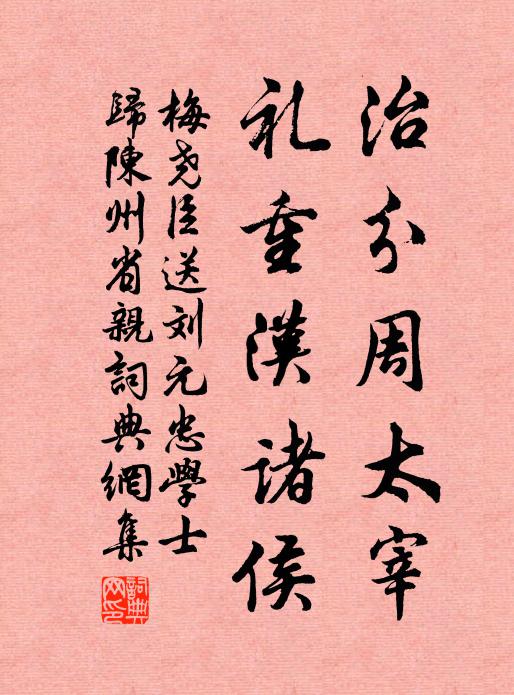 治分周太宰
礼重漢诸侯
梅尧臣送刘元忠學士
歸陳州省親詞典網集
詞典网印